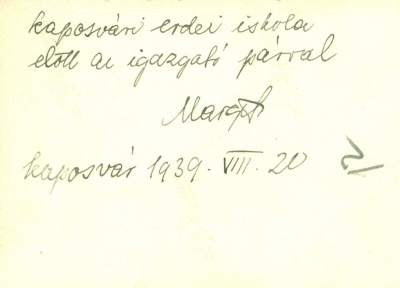 kaposvári erdei iskola
előtt az igazgató párral
Margit
Kaposvár 1939. VIII. 20